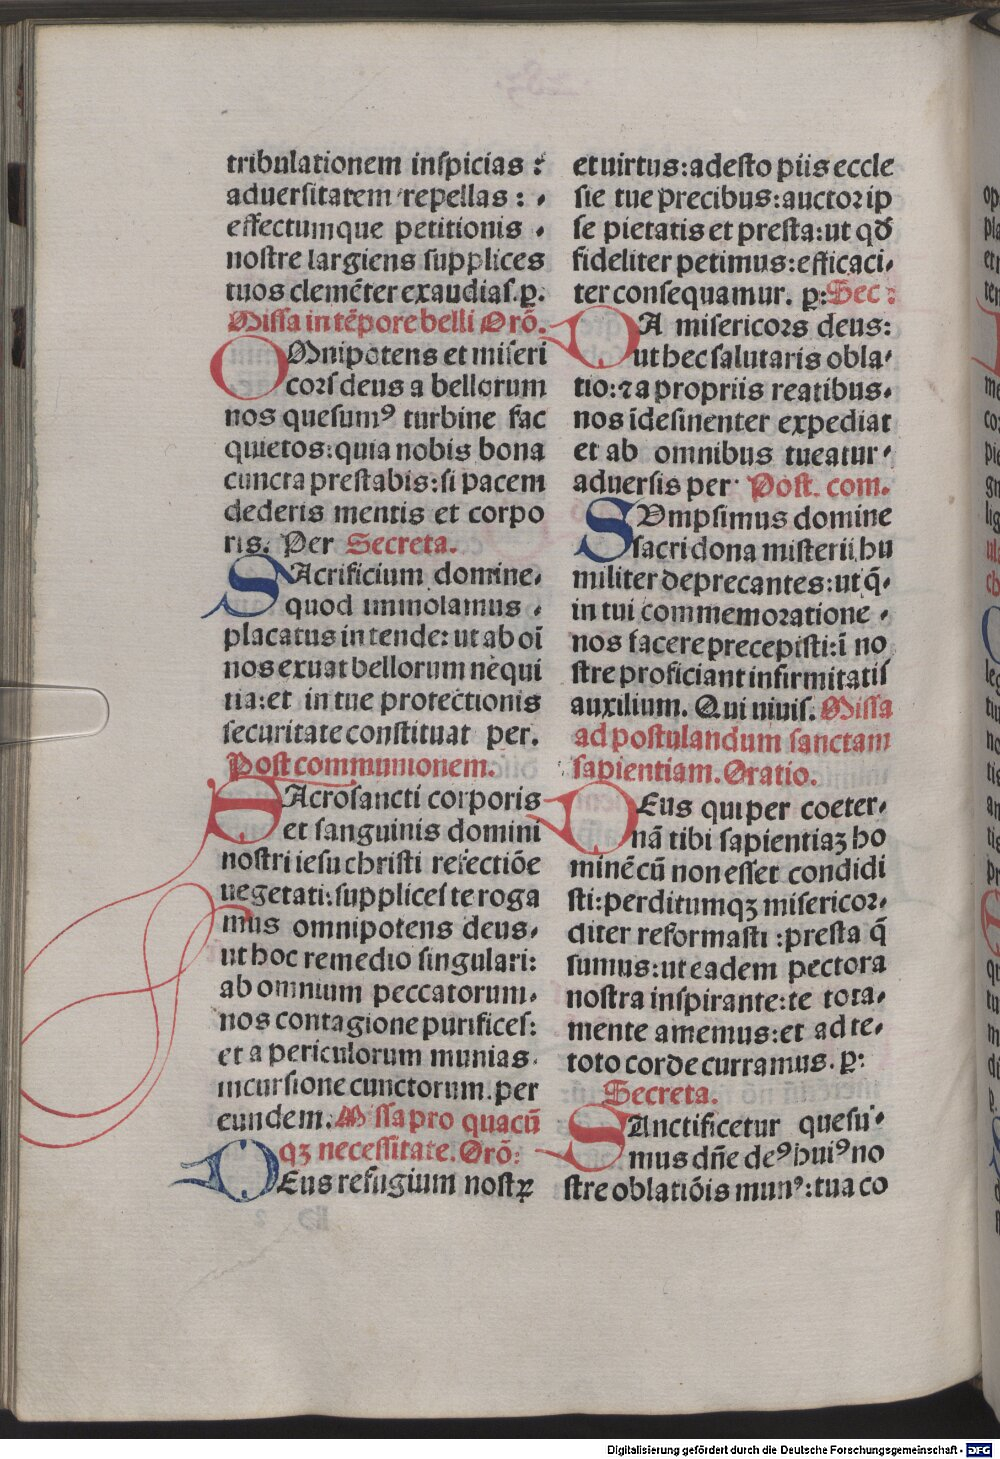 tribulationem inspicias :
aduersitatem repellas : .
effectumque petitionis .
nostre largiens supplices
tuos clemēter exaudias. p̲.
Missa in tēpore belli Orō.
OMnipotens et miseri
cors deus a bellorum
nos quesumꝰ turbine fac
quietos: quia nobis bona
cuncta prestabis: si pacem
dederis mentis et corpo
ris. Per Secreta.
SAcrificium domine.
quod immolamus .
placatus intende: ut ab oī
nos exuat bellorum nequi
tia: et in tue protectionis
securitate constituat per.
Post communionem.
SAcrosancti corporis
et sanguinis domini
nostri iesu christi refectiōe
uegetati: supplices te roga
mus omnipotens deus.
ut hoc remedio singulari:
ab omnium peccatorum.
nos contagione purifices:
et a periculorum munias.
incursione cunctorum. per
eundem. Missa pro quacū
qꝫ necessitate. Orō:
DEus refugium nostꝝ
et uirtus: adesto piis eccle
sie tue precibus: auctor ip
se pietatis et presta: ut qđ
fideliter petimus: efficaci.
ter consequamur. p̲: Sec :
DA misericors deus:
ut hec salutaris obla.
tio: ⁊ a propriis reatibus.
nos īdesinenter expediat
et ab omnibus tueatur.
aduersis per. Post. com.
SVmpsimus domine
sacri dona misterii, hu
militer deprecantes: ut q̄.
in tui commemoratione .
nos facere precepisti: ī no
stre proficiant infirmitatis
auxilium. Qui uiuis. Missa
ad postulandum sanctam
sapientiam. Oratio.
DEus qui per coeter.
nā tibi sapientiaꝫ ho
minē cū non esset condidi
sti: perditumqꝫ misericor.
diter reformasti : presta q̄
sumus: ut eadem pectora
nostra inspirante: te tota.
mente amemus: et ad te.
toto corde curramus. p̲:
Secreta.
SAnctificetur quesu.
mus dn̄e deꝰ huiꝰ no
stre oblatiōis munꝰ: tua co
Digitalisierung gefördert durch die Deutsche Forschungsgemeinschaft - DFG